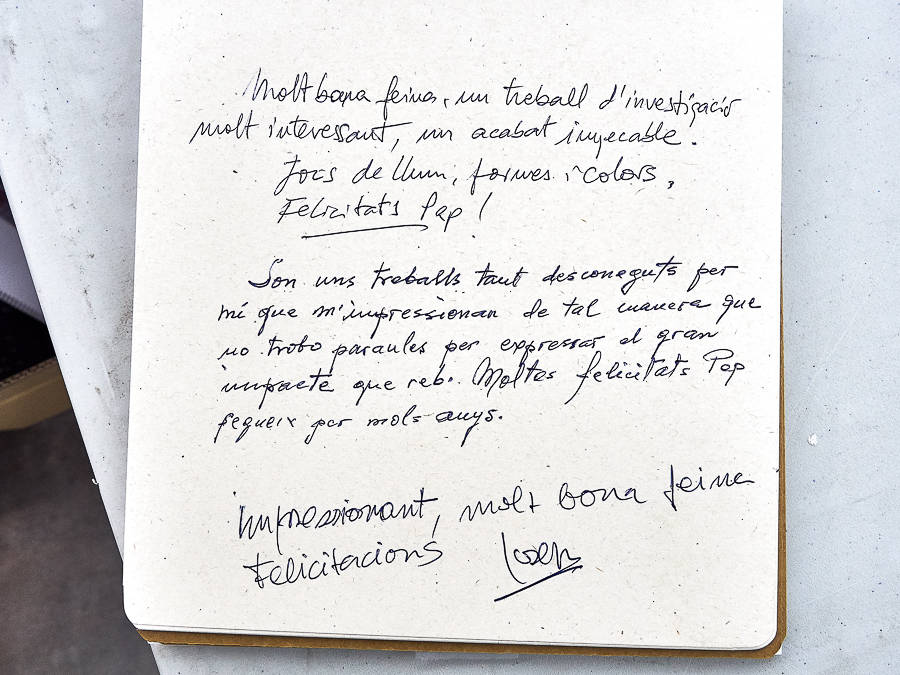 Molt bona feina, un treball d'investigació
molt interessant, un acabat impecable.
Jocs de llum, formes i colors,
Felicitats Pep!
Son uns treballs tant desconeguts per
mi que m'impressionan de tal manera que
no trobo paraules per expressar el gran
impacte que rebo. Moltes felicitats Pep
segueix per mols anys.
Impressionant, molt bona feina
Felicitacions Josep